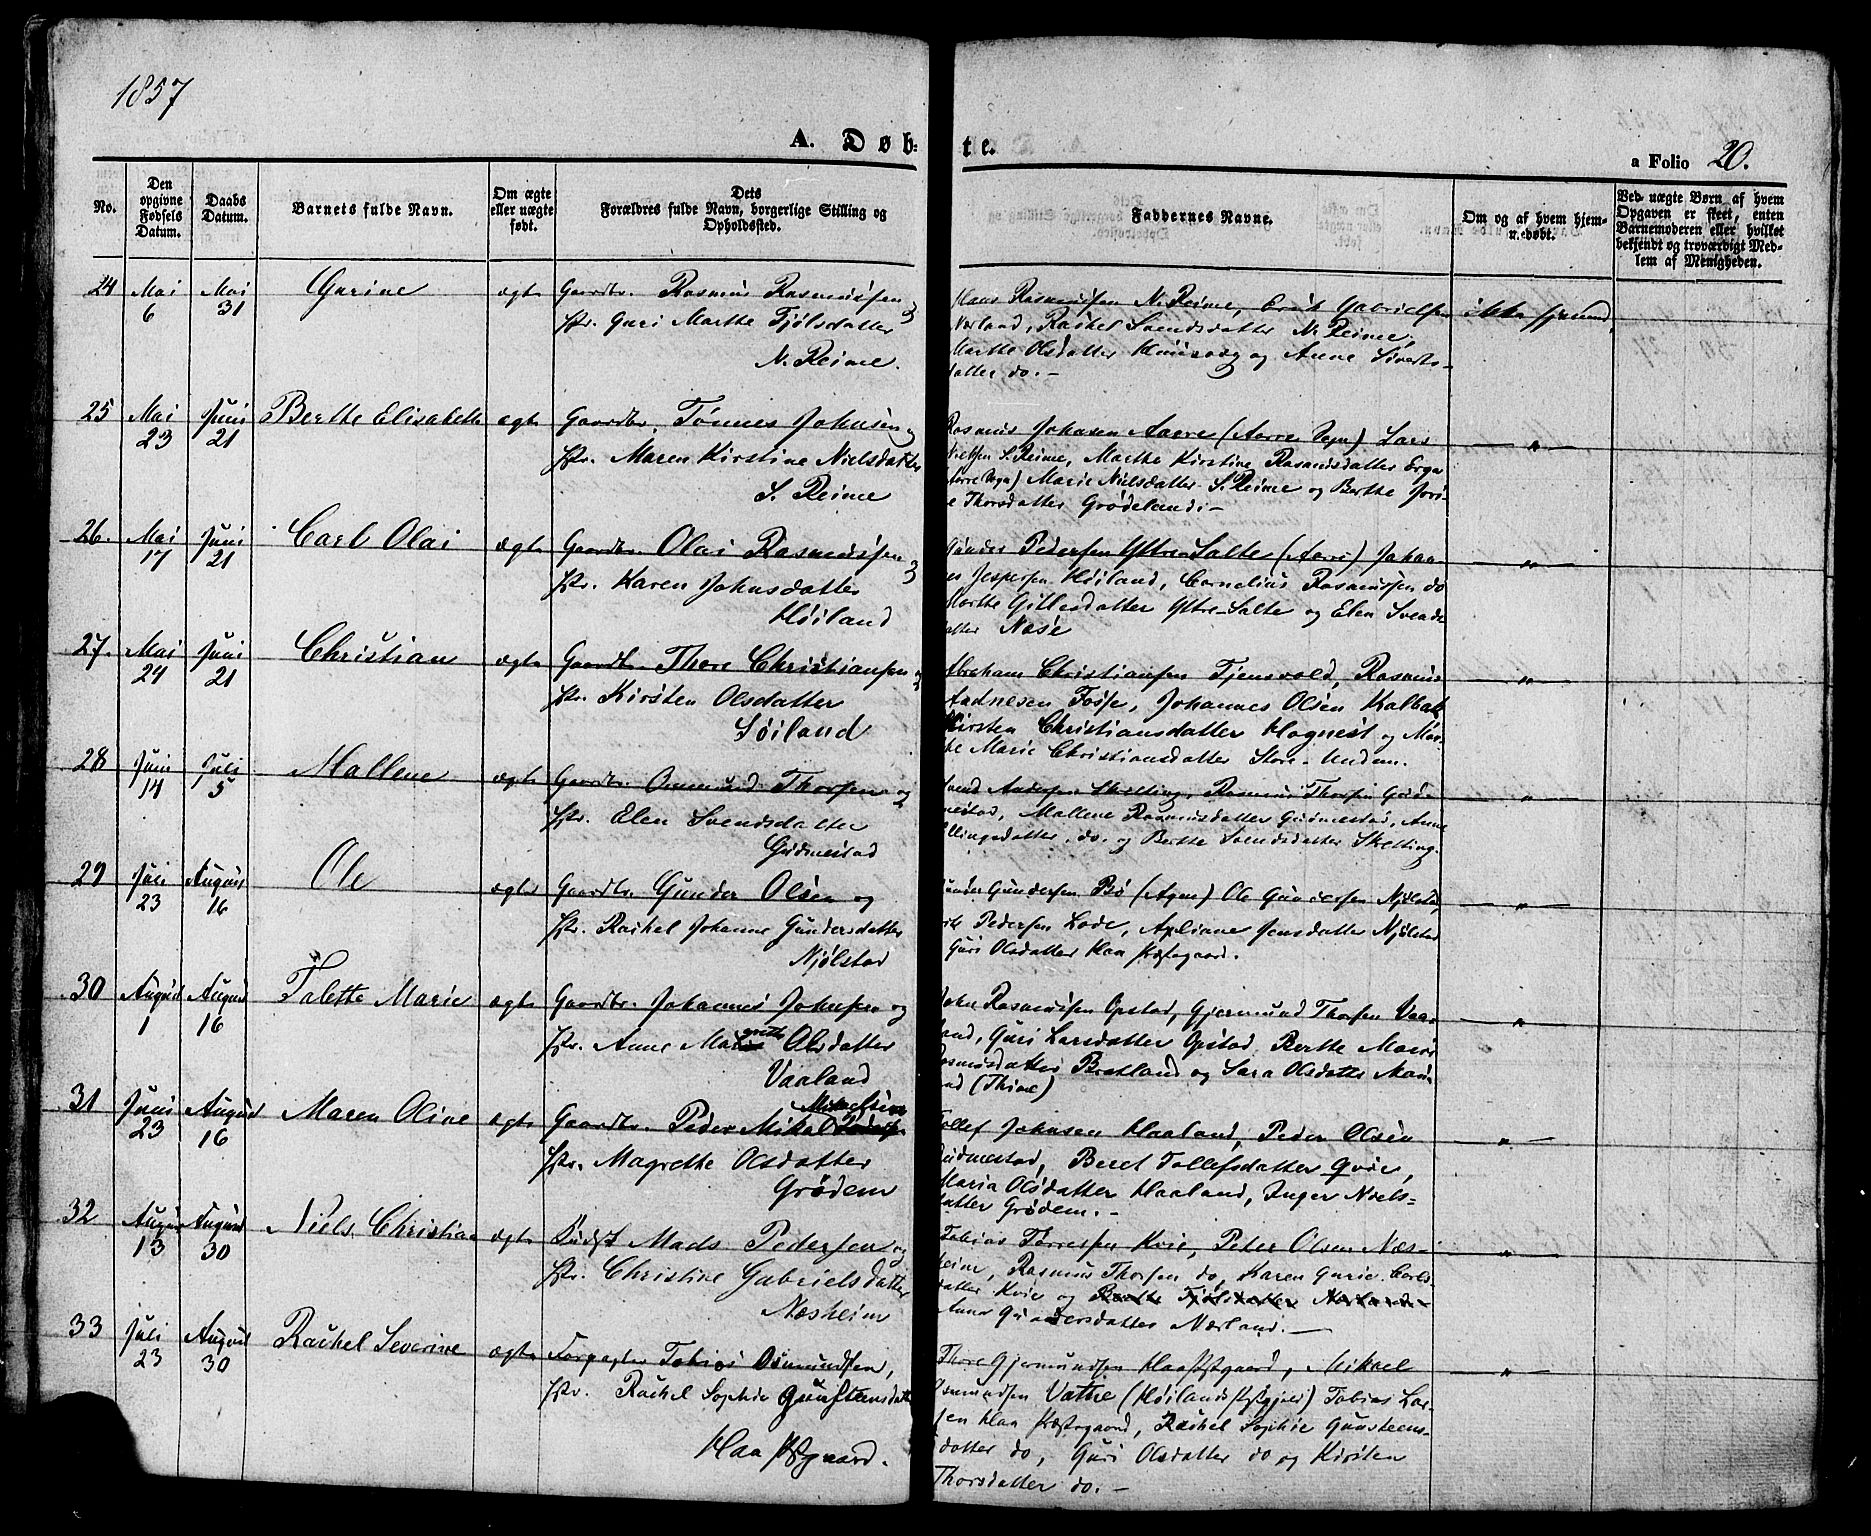 1857
A. Døb-
te.
a Folio 20.
No.
Den opgivne Fødsels Datum.
Daabs Datum.
Barnets fulde Navn.
Om ægte eller uægte født.
Dets Forældres fulde Navn, borgerlige Stilling og Opholdssted.
Faddernes Navne.
Om og af hvem hjemmedøbt.
Ved uægte Børn af hvem Opgaven er skeet, enten Barnemoderen eller hvilket bekjendt og troværdigt Medlem af Menigheden.
24 Mai 6 Mai 31 Gurine ægte Gaardbr. Rasmus Rasmussen og
Hstr. Guri Marthe Tjølsdatter
N. Reime.
Hans Rasmussen N. Reime, Erik Gabrielsen
Nærland, Rachel Svendsdatter N. Reime,
Marthe Olsdatter og Anne Siverts-
datter do. -
ikke hjemmed.
25 Mai 23 Juni 21 Berthe Elisabeth ægte Gaardbr. Tønnes Johnsen og
Hstr. Maren Kirstine Nielsdatter
S. Reime
Rasmus Johnsen Aarre (Aarre Sogn) Lars
Nielsen S. Reime, Marthe Kirstine Rasmusdatter Erga
(Aarre Sogn) Marie Nielsdatter S. Reime og Berthe Jori-
e Thorsdatter Grødeland: -
— " —
26. Mai 17 Juni 21 Carl Olai ægte Gaardbr. Olai Rasmussen og
Hstr. Karen Johnsdatter
Høiland
Gunder Pedersen Yttre Salte (Aarre) Johan-
es Jespersen Høiland, Cornelius Rasmussen do
Marthe Gitlesdatter Yttre-Salte og Elen Svends-
datter Nose
— " —
27. Mai 24 Juni 21 Christian ægte Gaardbr. Thore Christiansen og
Hstr. Kirsten Olsdatter
Søiland
Abraham Christiansen Tjensvold, Rasmus
Aadnesen Fosse, Johannes Olsen Kalbak
Kirsten Christiansdatter Hognest og Mar-
the Marie Christiansdatter Store-Undem.
— " —
28 Juni 14 Juli 5 Mallene ægte Gaardbr. Ommund Thorsen og
Hstr. Elen Svendsdatter
Gudmestad
Svend Andersen Skretting, Rasmus Thorsen Gud-
mestad, Mallene Rasmusdatter Gudmestad, Anne
Ellingsdatter do. og Berthe Svendsdatter Skretting.
— " —
29 Juli 23 August 16 Ole ægte Gaardbr. Gunder Olsen og
Hstr. Rachel Johanne Gundersdatter
Njølstad
Gunder Gundersen Bø (Ogne) Ole Gundersen Njølstad,
Erik Pedersen Lode, Apliane Jensdatter Njølstad
Guri Olsdatter Haa Præstegaard.
— " —
30 August 1 August 16 Talette Marie ægte Gaardbr. Johannes Johnsen og
Hstr. Anne Margrethe Olsdatter
Vaaland
John Rasmussen Opstad, Gjermund Thorsen Vaa-
land, Guri Larsdatter Opstad, Berthe Marie
Rasmusdatter Bratland og Sara Olsdatter
(Thime)
— " —
31 Juni 23 August 16 Maren Olive ægte Gaardbr. Peder Mikal Mikaelsen
Hstr. Magrethe Olsdatter
Grødem
Tollef Johnsen Haaland, Peder Olsen
Gudmestad, Beret Tollefsdatter Qvie,
Maria Olsdatter Haaland, Inger Niels-
datter Grødem. -
" —
32 August 13 August 30 Niels Christian ægte Mads Pedersen og
Hstr. Christine Gabrielsdatter
Næsheim
Tobias Torresen Kvie, Peter Olsen Næs-
heim, Rasmus Thorsen do, Karen Gurie Carls-
datter Kvie og Berthe Tjølsdatter Nærland
Anne Gundersdatter Nærland. —
" —
33 Juli 23 August 30 Rachel Severine ægte Forpagter Tobias Osmundsen,
Hstr. Rachel Sophie Gunstensdatter
Haa Pstgaard.
Thore Gjermundsen Haa Pstgaard, Mikael
Osmundsen Vatne (Høilands Pstgjeld) Tobias Lar-
sen Haa Præstegaard, Rachel Sophie Gunsteens-
datter do, Guri Olsdatter do og Kirsten
Thorsdatter do. -
— " —